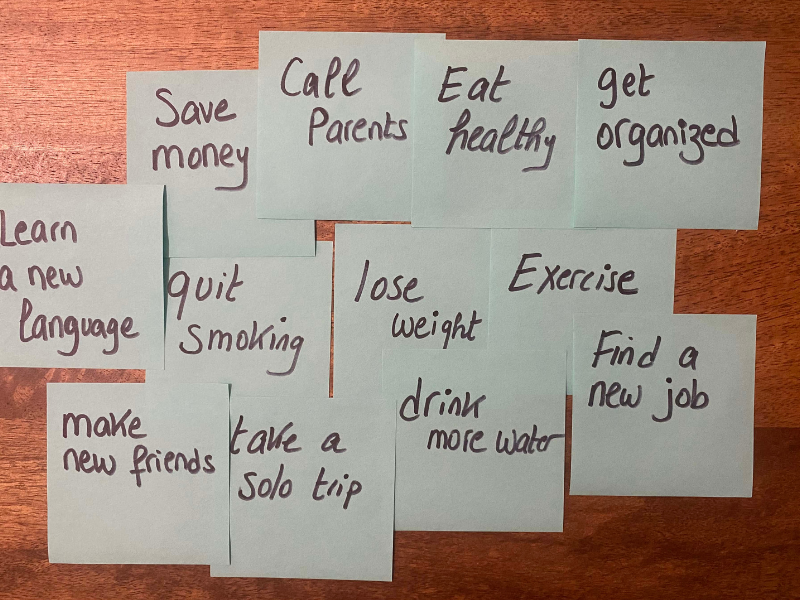 Save
money
Call
Parents
Eat
healthy
get
organized
Learn
a new
language
quit
smoking
lose
weight
Exercise
Find a
new job
make
new friends
take a
solo trip
drink
more water